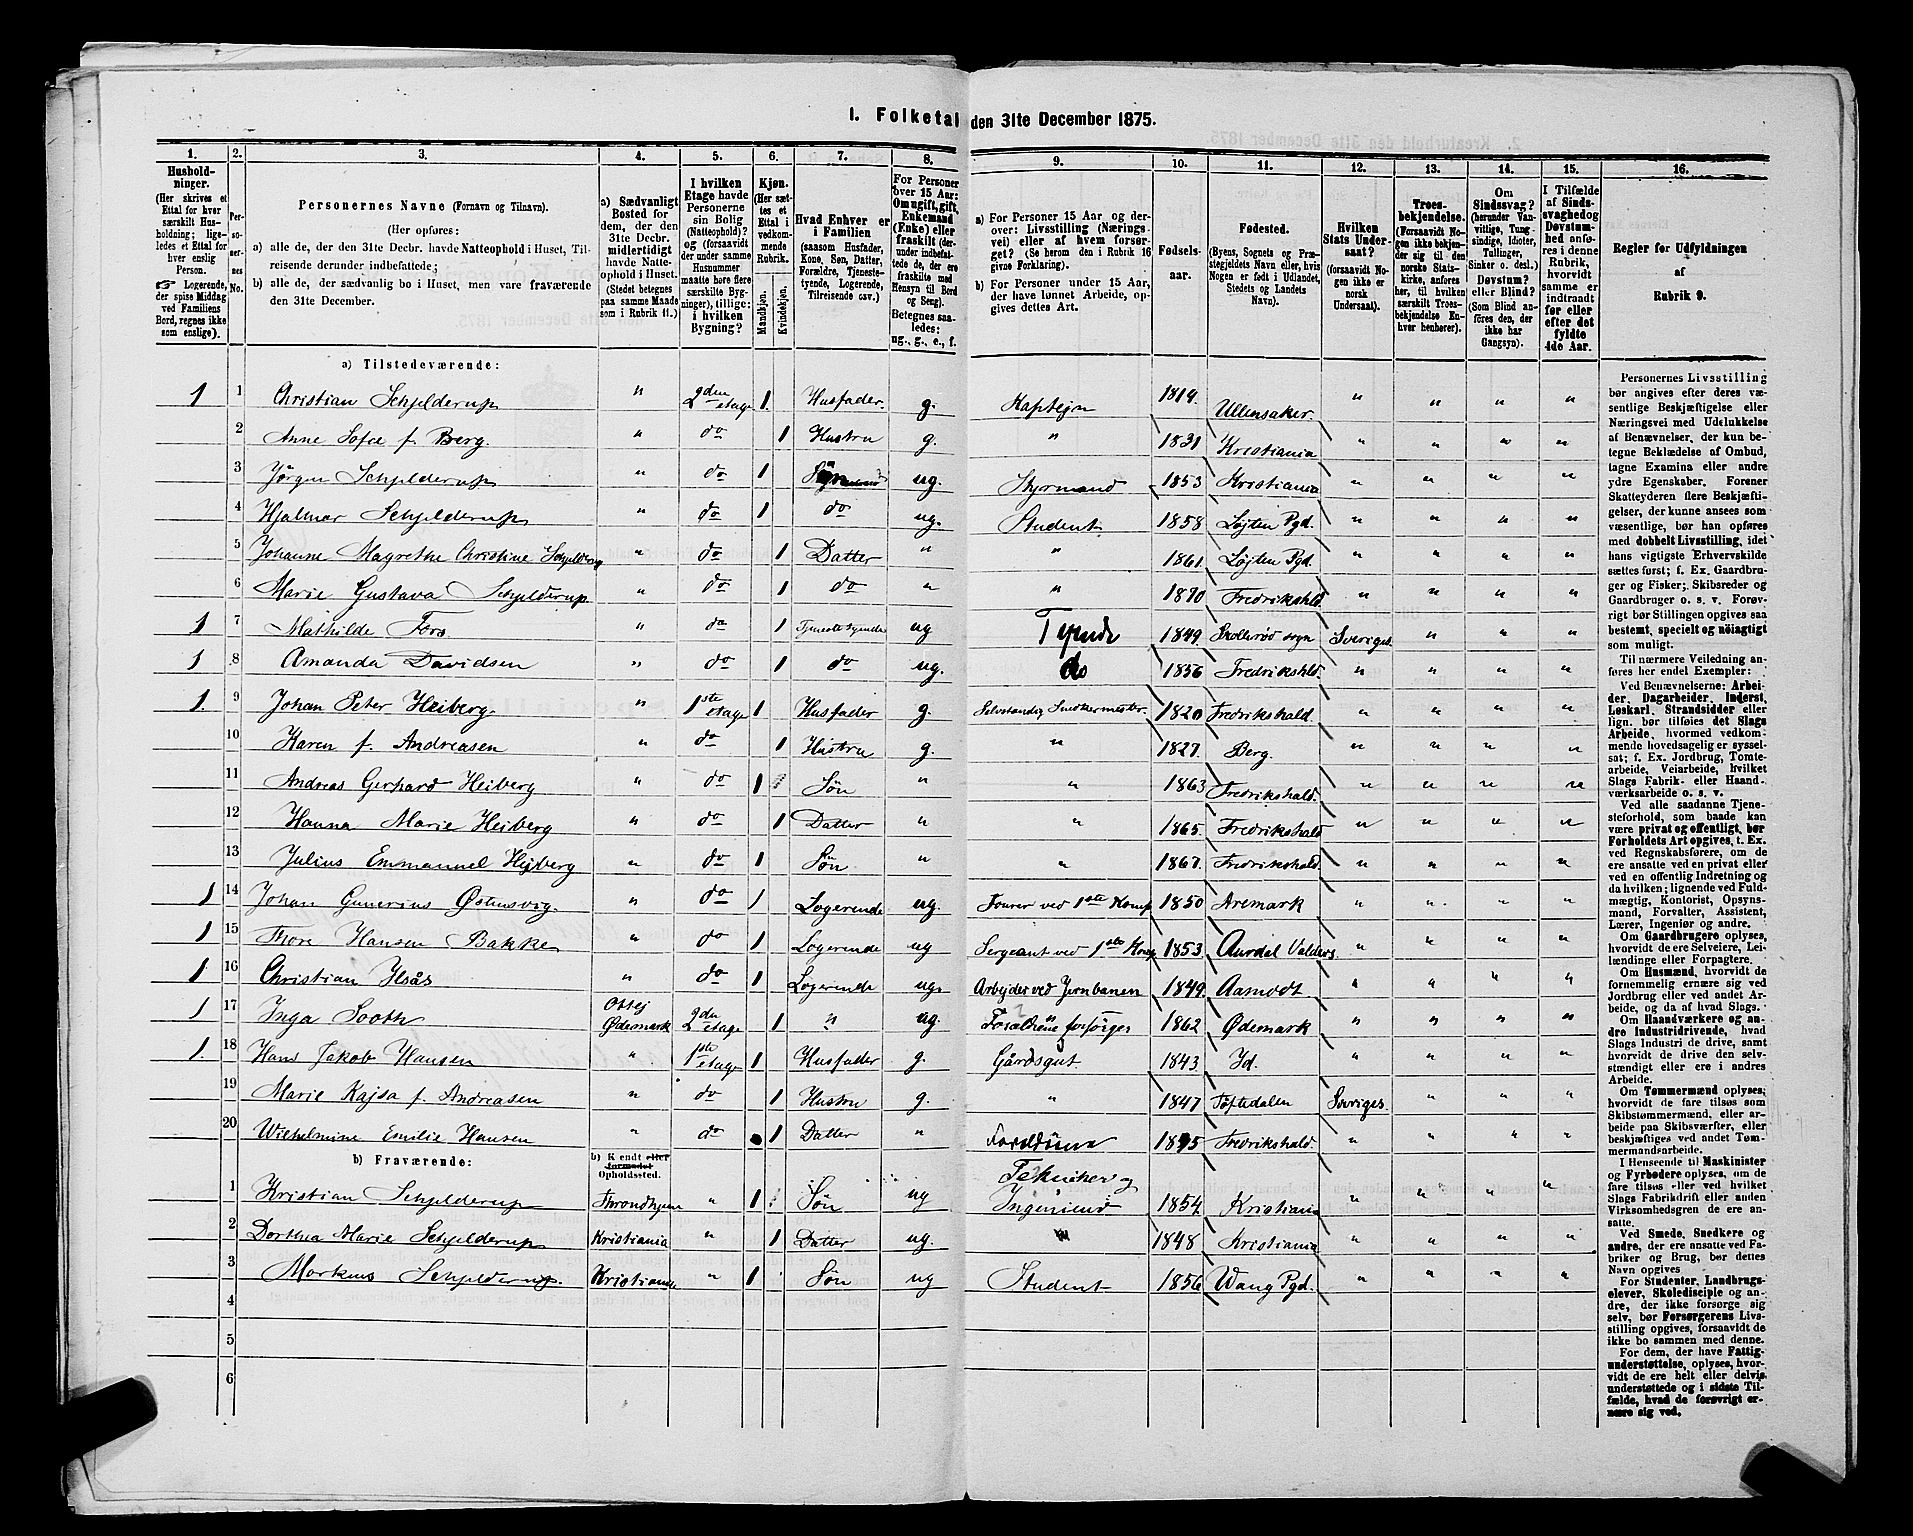 1. Folketal den 31te December 1875.
1. 2. 3. 4. 5. 6. 7. 8. 9. 10. 11. 12. 13. 14. 15. 16.
Hushold-
ninger.
(Her skrives et
Ettal for hver
særskilt Hus-
holdning; lige-
ledes et Ettal for
hver enslig
Person.
☞ Logerende,
der spise Middag
ved Familiens
Bord, regnes ikke
som enslige).
Per-
so-
ner-
nes
No.
Personernes Navne (Fornavn og Tilnavn).
(Her opføres:
a) alle de, der den 31te Decbr. havde Natteophold i Huset, Til-
reisende derunder indbefattede;
b) alle de, der sædvanlig bo i Huset, men vare fraværende
den 31te December.
a) Sædvanligt
Bosted for
dem, der den
31te Decbr.
midlertidigt
havde Natte-
ophold i Huset.
(Stedet betegnes
paa samme Maade
som i Rubrik 11.)
I hvilken
Etage havde
Personerne
sin Bolig
(Natteophold)?
og (forsaavidt
der under samme
Husnummer
maatte høre flere
særskilte Byg-
ninger, tillige:
i hvilken
Bygning?
Kjøn.
(Her sæt-
tes et
Ettal i
vedkom-
mende
Rubrik.
Mandkjøn.
Kvindekjøn.
Hvad Enhver er
i Familien
(saasom Husfader,
Kone, Søn, Datter,
Forældre, Tjeneste-
tyende, Logerende,
Tilreisende osv.)
For Personer
over 15 Aar:
Om ugift, gift,
Enkemand
(Enke) eller
fraskilt (der-
under indbefat-
tede de, der ere
fraskilte med
Hensyn til Bord
og Seng).
Betegnes saa-
ledes:
ug., g., e., f.
a) For Personer 15 Aar og der-
over: Livsstilling (Nærings-
vei) eller af hvem forsør-
get? (Se herom den i Rubrik 16
givne Forklaring).
b) For Personer under 15 Aar,
der have lønnet Arbeide, op-
gives dettes Art.
Fødsels-
aar.
Fødested.
(Byens, Sognets og Præ-
stegjeldets Navn eller, hvis
Nogen er født i Udlandet,
Stedets og Landets
Navn).
Hvilken
Stats Under-
saat?
(forsaavidt No-
gen ikke er
norsk
Undersaat).
Troes-
bekjendelse.
(Forsaavidt No-
gen ikke bekjen-
der sig til den
norske Stats-
kirke, anføres
her, til hvilken
særskilt Troes-
bekjendelse En-
hver henhører).
Om
Sindssvag?
(herunder Van-
vittige, Tung-
sindige, Idioter,
Tullinger,
Sinker o. desl.)
Døvstum?
eller Blind?
(Som Blind an-
føres den, der
ikke har
Gangsyn).
I Tilfælde
af Sinds-
svaghed og
Døvstum-
hed anfø-
res i denne
Rubrik,
hvorvidt
samme er
indtraadt
før eller
efter det
fyldte
4de Aar.
Regler for Udfyldningen
af
Rubrik 9.
a) Tilstedeværende:
1 1 Christian Schjelderup " 2den etage 1. Husfader. g. Kaptejn 1819. Ullensaker. " " " "
2 Anne Sofie f. Berg. " do 1 Hustru g. " 1831 Kristiania " " " "
3 Jørgen Schjelderup " do 1 Søn ug. Styrmand 1853 Kristiania " " " "
4 Hjalmar Schjelderup " do 1 do ug. Student 1858 Løjten Pgd. " " " "
5 Johanne Magrethe Christine Schjelderup " do 1 Datter " " 1861. Løjten Pgd. " " " "
6 Marie Gustava Schjelderup " do 1 do " " 1870 Fredrikshld. " " " "
1 7 Mathilde Fors " do 1 Tjenestetyende ug Tyende 1849. sogn Sveriges " " "
1 8 Amanda Davidsen " do 1 do ug. do 1856 Fredrikshld. " " " "
1. 9 Johan Peter Heiberg. " 1ste etage 1 Husfader g. Selvstændig Snedkermester. 1820 Fredrikshald. " " " "
10 Karen f. Andreasen " do 1 Hustru g. " 1827. Berg. " " " "
11 Andreas Gerhard Heiberg " do 1 Søn " " 1863 Fredrikshald. " " " "
12 Hanna Marie Heiberg " do 1 Datter " " 1865. Fredrikshald " " " "
13 Julius Emmanuel Heiberg " do 1 Søn. " " 1867. Fredrikshald. " " " "
1 14 Johan Gunerius Østensvig. " do 1 Logerende ug. Fourer ved 1ste Komp 1850 Aremark " " " "
1 15 Thore Hansen Bakke " do 1 Logerende ug Sergeant ved 1ste Komp 1853. Aurdal Valders " " " "
1 16 Christian Ilsås " do 1 Logerende ug. Arbejder ved Jernbanen 1849. Aamodt " " " "
1 17 Inga Sooth Ødemark 2den etage 1 " ug. Forældrene forsørges 1862 Ødemark " " " "
1. 18 Hans Jakob Hansen " 1ste etage 1 Husfader g. Gårdsgut 1843 Id. " " " "
19 Marie Kajsa f. Andreasen " do 1 Hustru g. " 1847 Töftedalen Sveriges " " "
20 Wilhelmine Emilie Hansen " do 1 Datter " Forældrene 1875 Fredrikshald. " " " "
b) Fraværende:
b) Kjendt eller
formodet
Opholdssted.
1 Kristian Schjelderup Throndhjem " 1 Søn ug Tekniker og Ingeniend 1854. Kristiania " " " "
2 Dorthea Marie Schjelderup Kristiania " 1 Datter ug. " 1848 Kristiania " " " "
3 Markus Schjelderup. Kristiania " 1 Søn ug Student 1856 Wang Pgd. " " " "
4
5
6
Personernes Livsstilling
bør angives efter deres væ-
sentlige Beskjæftigelse eller
Næringsvei med Udelukkelse
af Benævnelser, der kun be-
tegne Beklædelse af Ombud,
tagne Examina eller andre
ydre Egenskaber. Forener
Skatteyderen flere Beskjæfti-
gelser, der kunne ansees som
væsentlige, bør han opføres
med dobbelt Livsstilling, idet
hans vigtigste Erhvervskilde
sættes først; f. Ex. Gaardbru-
ger og Fisker; Skibsreder og
Gaardbruger o. s. v. Forøv-
rigt bør Stillingen opgives saa
bestemt, specielt og nöiagtigt
som muligt.
Til nærmere Veiledning an-
føres her endel Exempler:
Ved Benævnelserne: Arbei-
der, Dagarbeider, Inderst,
Løskarl, Strandsidder eller
lign. bør tilføies det Slags
Arbeide, hvormed vedkom-
mende hovedsagelig er syssel-
sat; f. Ex. Jordbrug, Tomte-
arbeide, Veiarbeide, hvilket
Slags Fabrik- eller Haand-
værksarbeide o. s. v.
Ved alle saadanne Tjene-
steforhold, som baade kan
være privat og offentligt, bør
Forholdets Art opgives, t. Ex.
ved Regnskabsførere, om de
ere ansatte ved en privat eller
ved en offentlig Indretning og
da hvilken; lignende ved Fuld-
mægtig, Kontorist, Opsyns-
mand, Forvalter, Assistent,
Lærer, Ingeniør og andre.
Om Gaardbrugere oplyses,
hvorvidt de ere Selveiere, Lei-
lændinge eller Forpagtere.
Om Husmænd, hvorvidt de
fornemmelig ernære sig ved
Jordbrug eller ved andet Ar-
beide, og da af hvad Slags.
Om Haandværkere og an-
dre Industridrivende, hvad
Slags Industri de drive, samt
hvorvidt de drive den selv-
stændigt eller ere i andres
Arbeide.
Om Tømmermænd oplyses,
hvorvidt de fare tilsøs som
Skibstømmermænd, eller ar-
beide paa Skibsværfter, eller
beskjæftiges ved andet Tøm-
mermandsarbeide.
I Henseende til Maskinister
og Fyrbødere oplyses, om de
fare tilsøs eller ved hvilket
Slags Fabrikdrift eller anden
Virksomhedsgren de ere an-
satte.
Ved Smede, Snedkere og
andre, der ere ansatte ved Fa-
briker og Brug, bør dettes
Navn opgives
For Studenter, Landbrugs-
elever, Skoledisciple og an-
dre, der ikke forsørge sig
selv, bør Forsørgerens Livs-
stilling opgives, forsaavidt de
ikke bo sammen med denne.
For dem, der have Fattig-
understøttelse, oplyses, hvor-
vidt de ere helt eller delvis
understøttede og i sidste Til-
fælde, hvad de forøvrigt er-
nære sig ved.